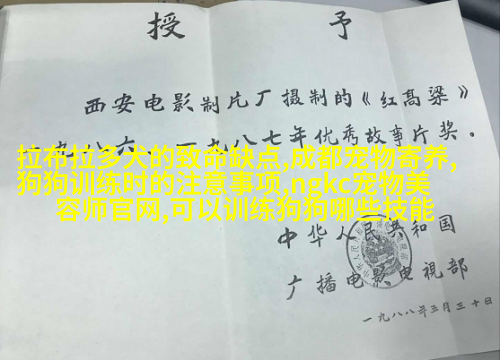 授 予
西安电影制片厂摄制的《红高粱》
一九八六、一九八七年优秀故事片奖。
拉布拉多犬的致命缺点,成都宠物寄养,
狗狗训练时的注意事项,ngkc宠物美
容师官网,可以训练狗狗哪些技能
中华人民共和国
广播电影电视部
一九八八年三月三十日